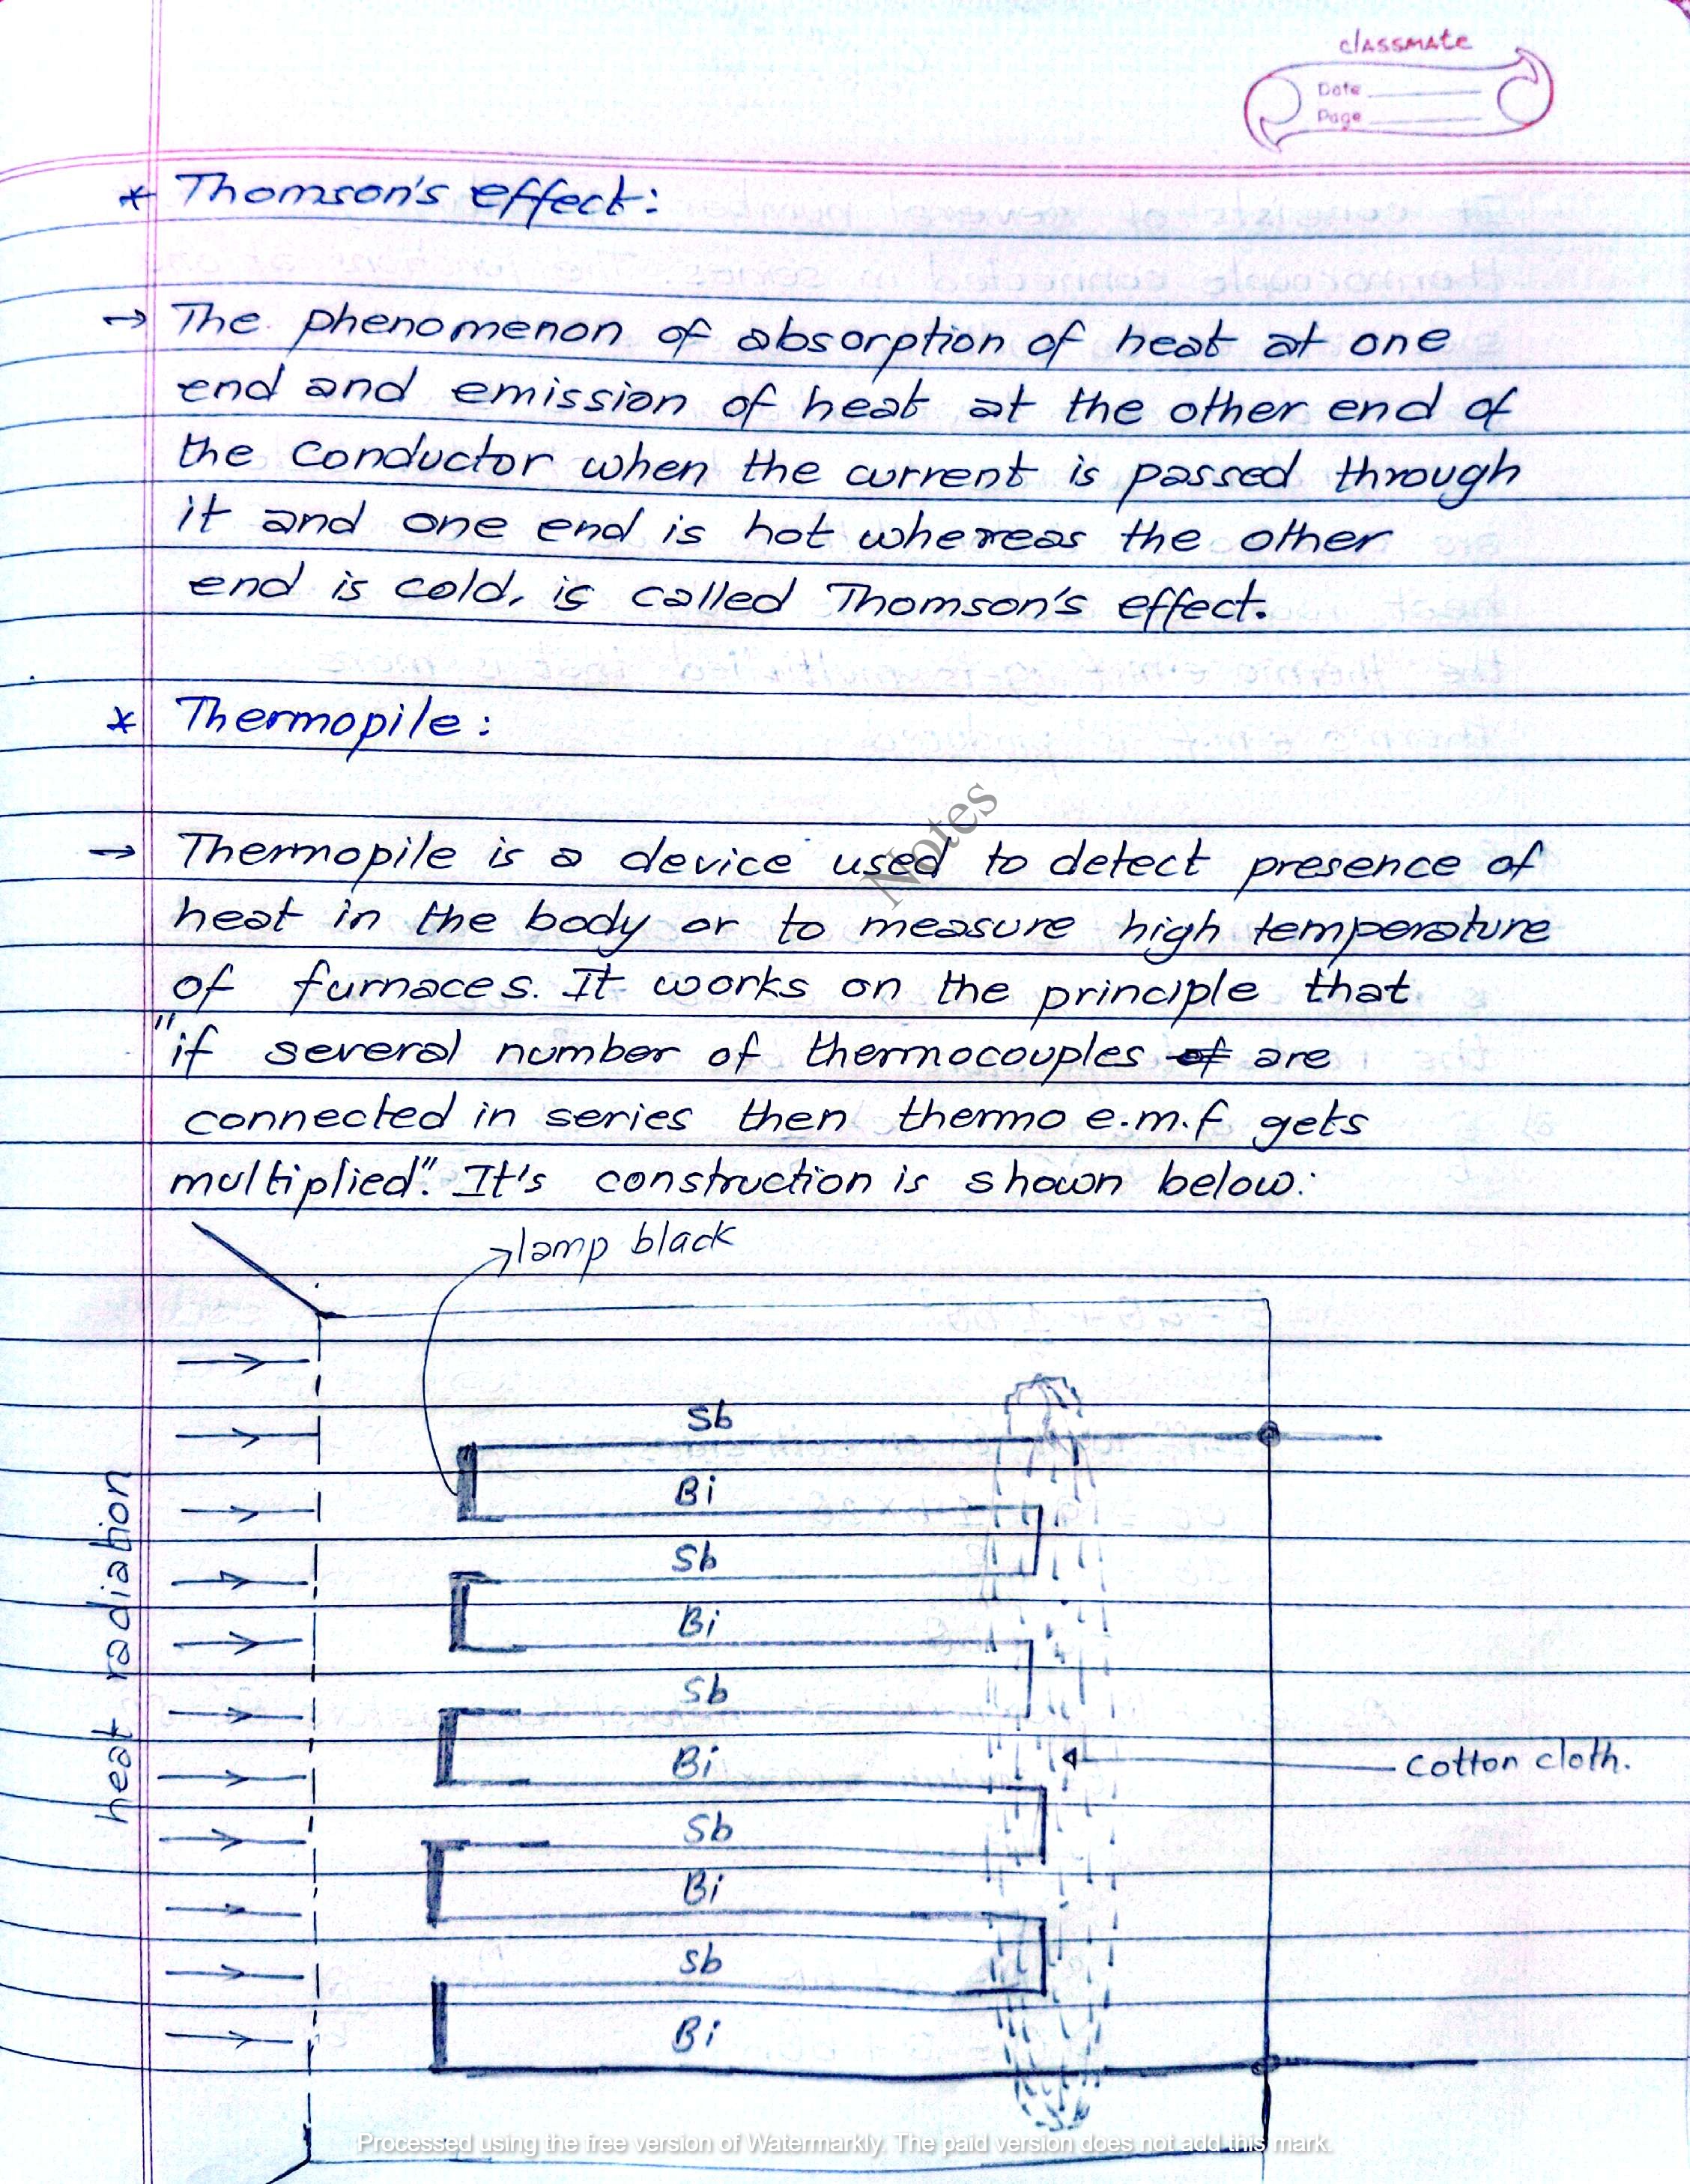 classmate
Date
Page
* Thomson's effect:
→ The phenomenon of absorption of heat at one
end and emission of heat at the other end of
the conductor when the current is passed through
it and one end is hot whereas the other
end is cold, is called Thomson's effect.
* Thermopile:
Notes
→ Thermopile is a device used to detect presence of
heat in the body or to measure high temperature
of furnaces. It works on the principle that
"if several number of thermocouples of are
connected in series then thermo e.m.f gets
multiplied". It's construction is shown below:
lamp black
Sb
Bi
Sb
Bi
Sb
Bi
Sb
Bi
Sb
Bi
heat radiation
cotton cloth.
Processed using the free version of Watermarkly. The paid version does not add this mark.